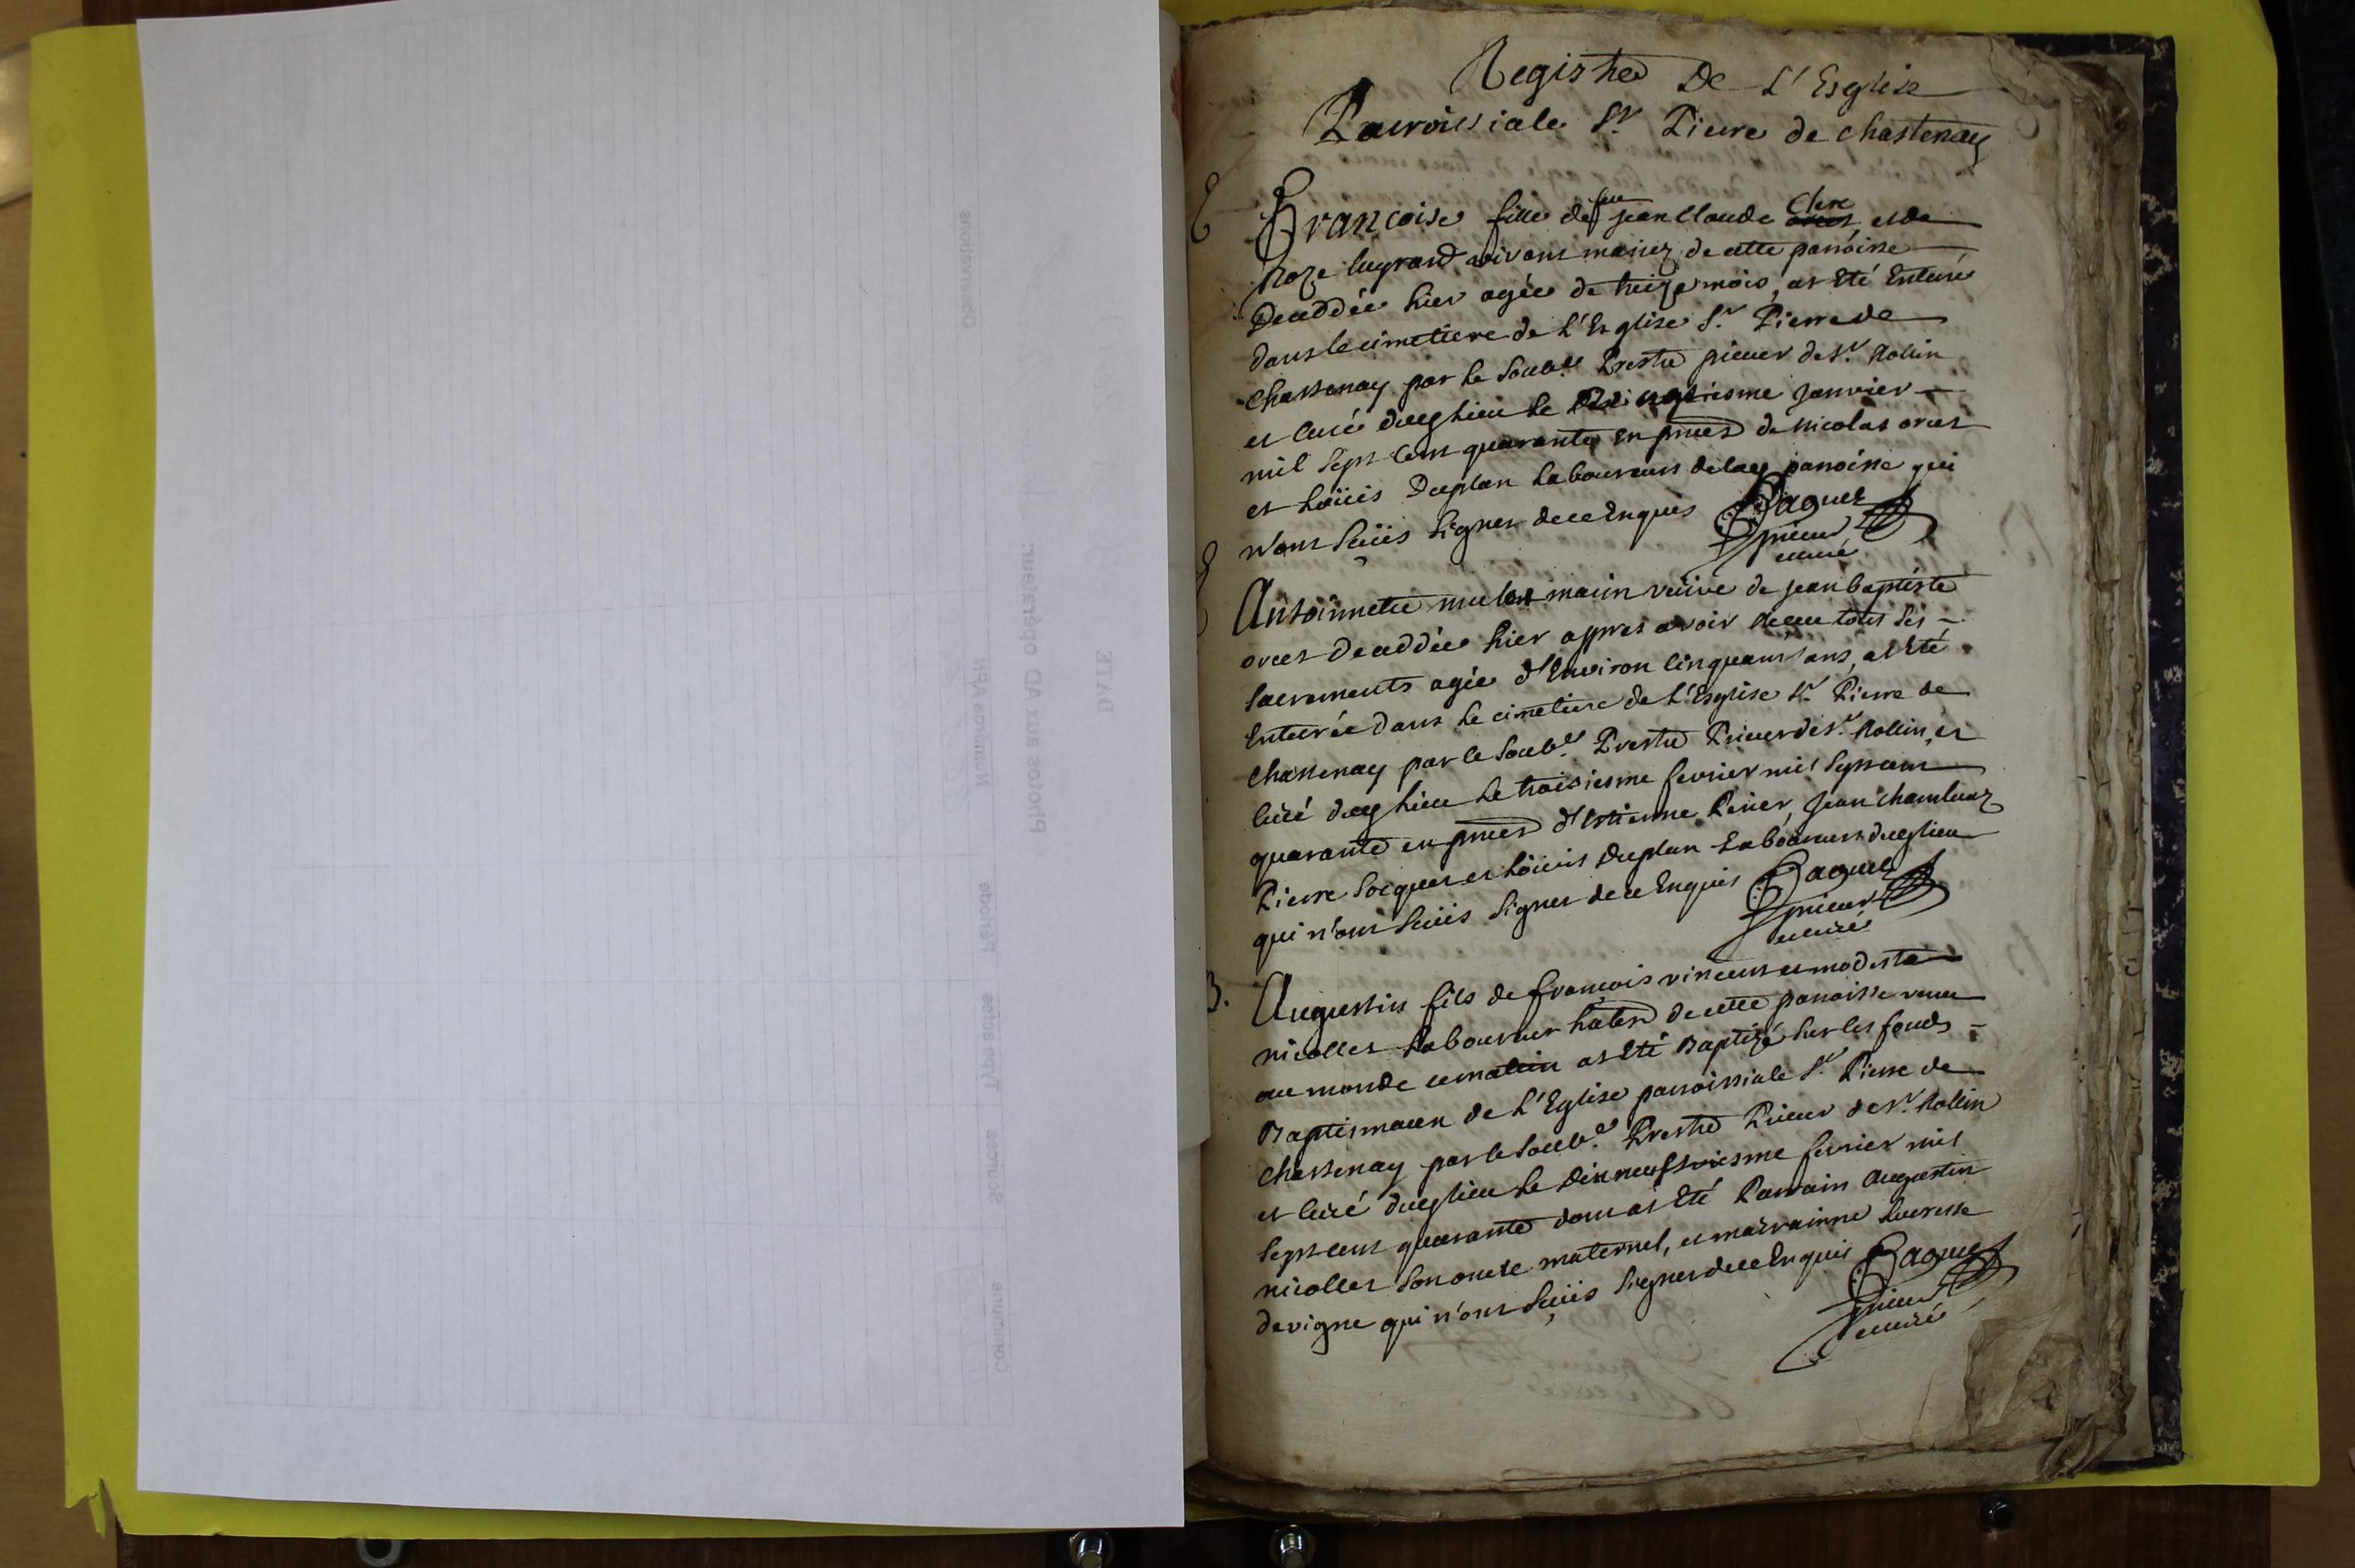 Registre De L'Esglise
Parroissiale St Pierre de chastenay
E
Françoise fille de feu jean Claude Clerc et de
Roze lugrand vivans mariez de cette parroisse
Deceddée hier agée de treize mois, at Eté Enterré
dans le cimetiere de L'Esglise St Pierre de
Chastenay par le Soubs. Prestre prieur de St Rollin
et Curé dudt lieu le janvier
mil Sept Cent quarante en pnces de Nicolas
et Loüis Duplan Laboureurs de lad parroisse qui
n'ont Sceüs Signer de ce Enquis Baguet
prieur
curé
E
Antoinnette marin veüve de jean baptiste
Deceddée hier appres avoir Receu tous Ses
Sacrements agée d'Environ Cinquant ans, at Eté
Enterrée dans le cimetiere de L'Esglise St Pierre de
Chastenay par le Soubs. Prestre Prieur de St Rollin, et
Curé dudt lieu le troisiesme fevrier mil Sept cent
quarante en pnces d'Estienne Perier, jean
Pierre Socquet et Loüis Duplan Laboureurs dudt lieu
qui n'ont Sceüs Signer de ce Enquis Baguet
prieur
curé
B.
Augustin fils de françois vincent et modeste
nicollet Laboureur de cette parroisse venu
au monde ce matin at Eté Baptizé Sur les fonds
Baptismaux de L'Eglise parroissiale St Pierre de
Chastenay par le Soubs. Prestre Prieur de St Rollin
et Curé dudt lieu le Dix neufviesme fevrier mil
Sept cent quarante dont at Eté Parrain Augustin
nicollet Son oncle maternel, et marrainne Lucresse
devigne qui n'ont Sceüs Signer de ce Enquis Baguet
prieur
curé
DATE
Photos aux AD opérateur:
Commune Sources Type actes Période Numéros APN Observations